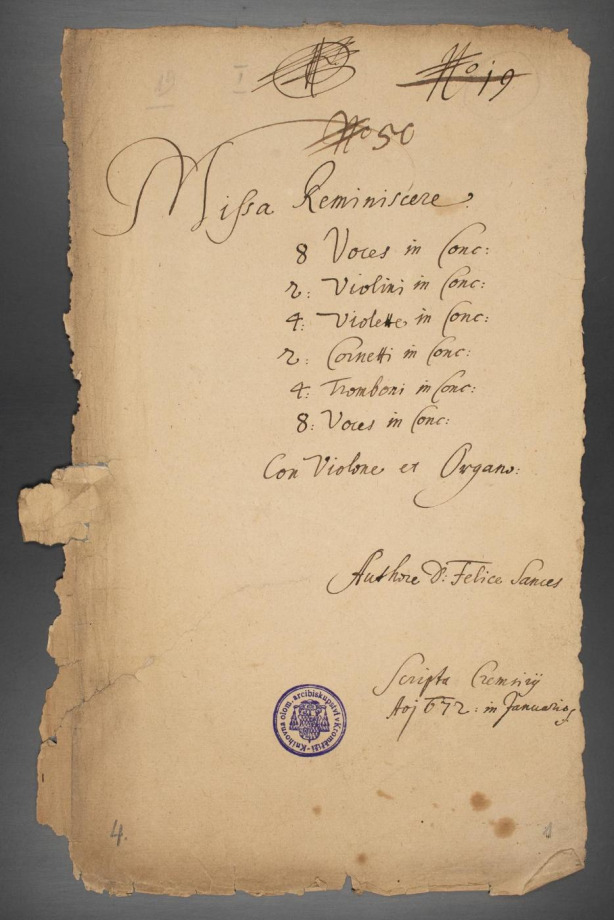 19 I
No: 19
No 50
Missa Reminiscere.
8 Voces in Conc:
2: Violini in Conc:
4: Violette in Conc:
2: Cornetti in Conc:
4: Tromboni in Conc:
8: Voces in Conc:
Con Violone et Organo:
Authore D: Felice Sances
Scripta Cremsirij
Aoj 672: in Januario
Knihovna olom. arcibiskupství v Kroměříži
4.